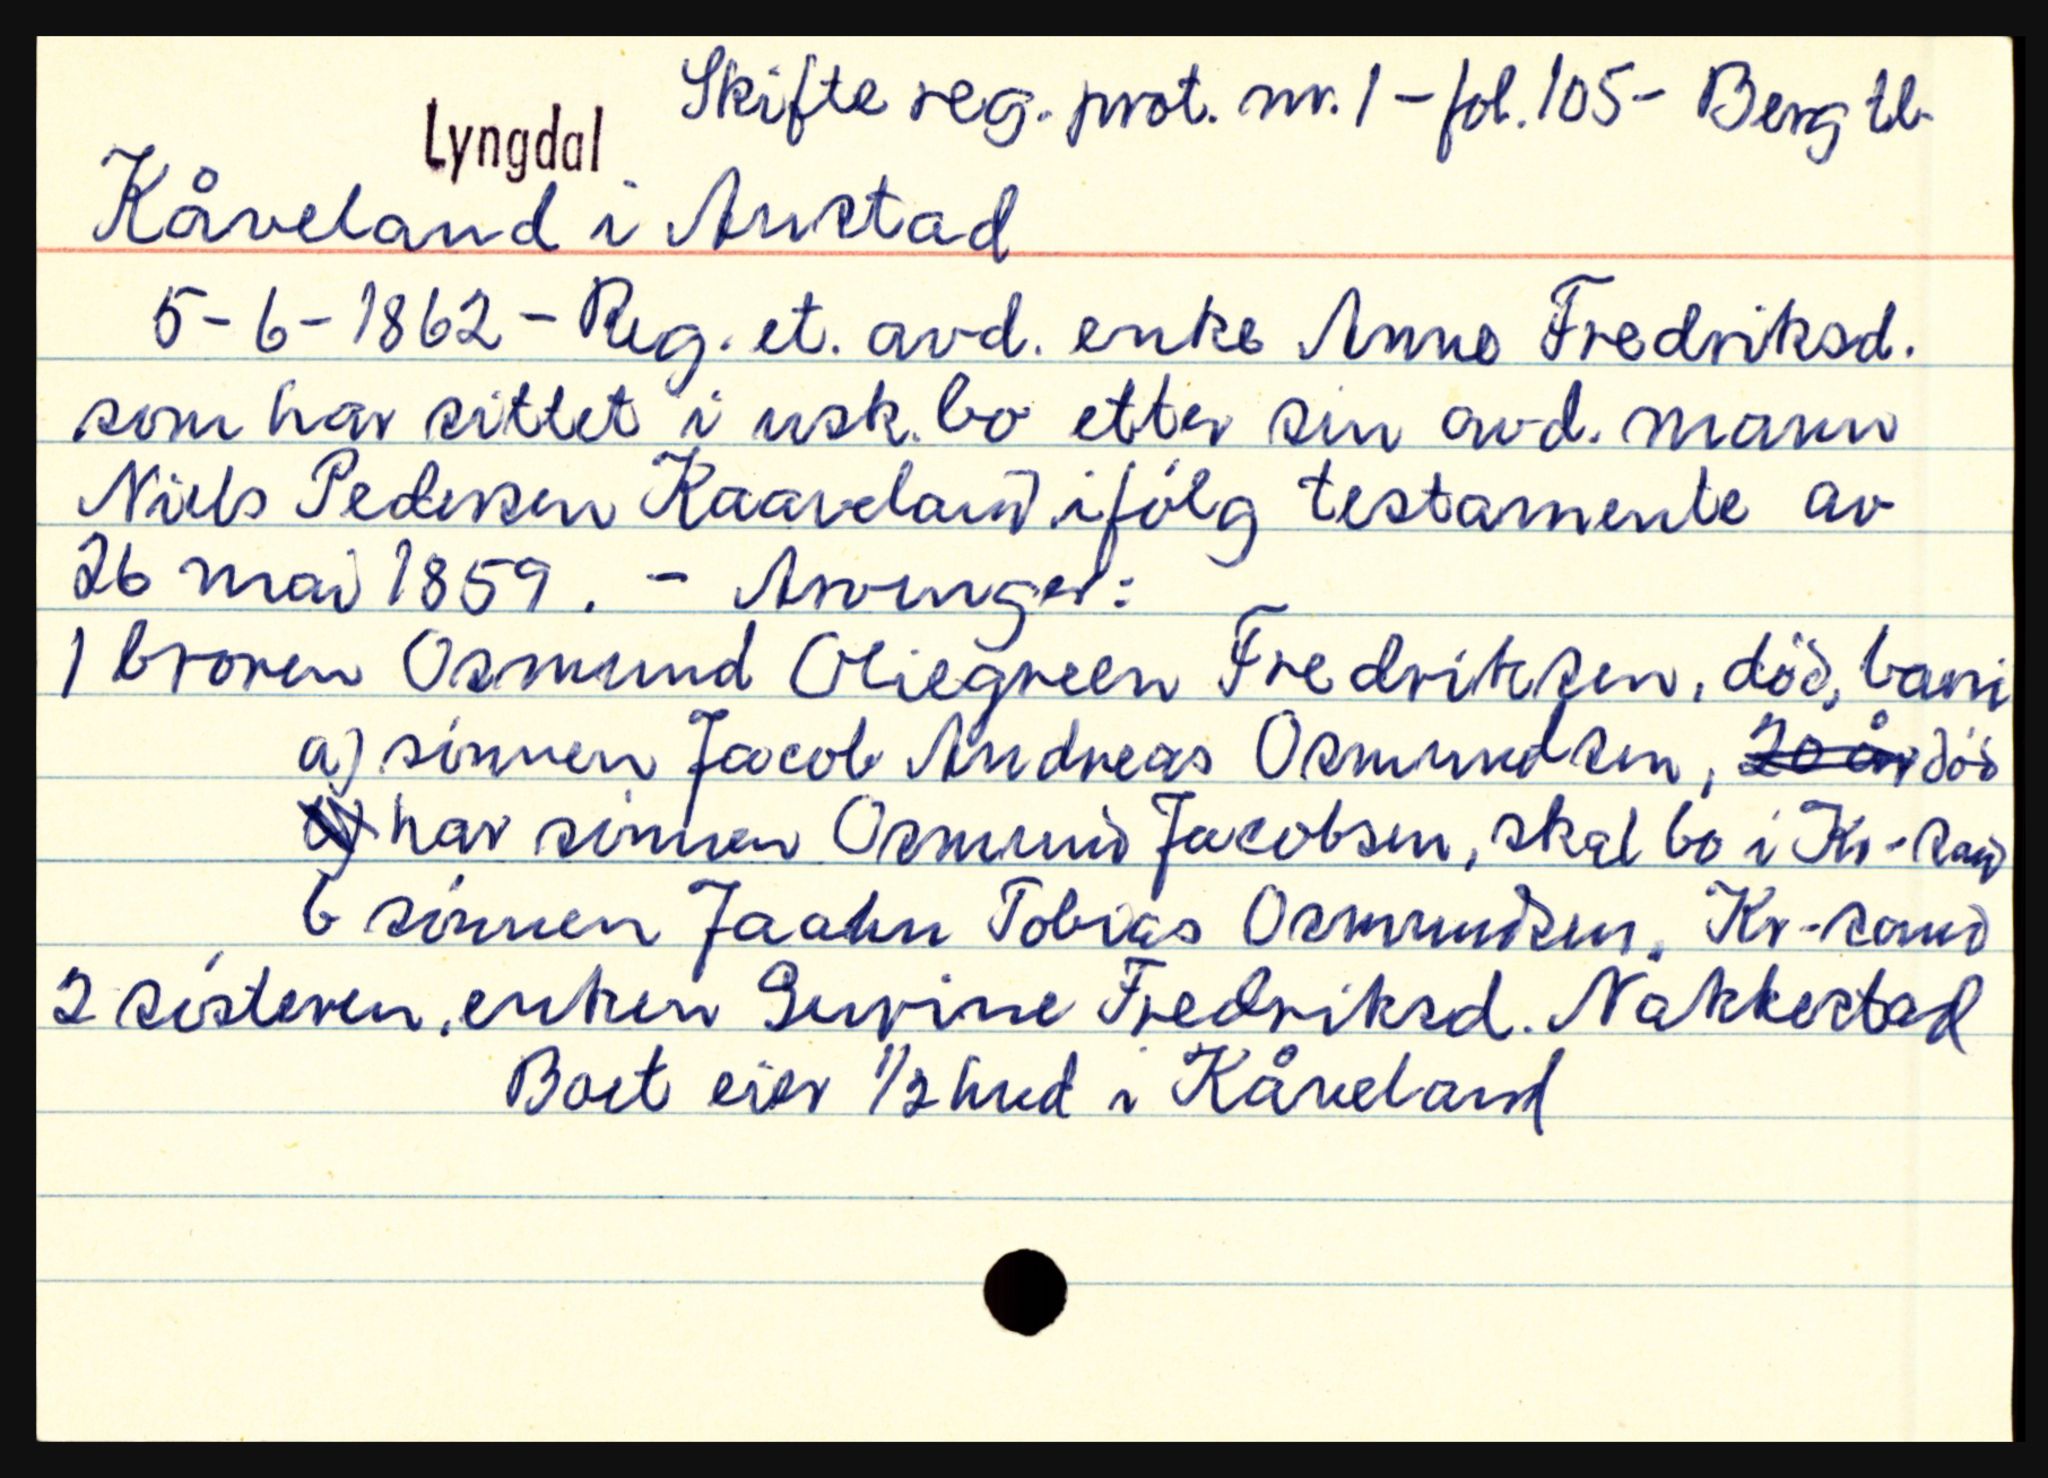 Skifte reg. prot. nr. 1 - fol. 105 - Berg tb.
Lyngdal
Kåveland i Austad
5-6-1862 - Reg. et. avd. enke Anne Fredriksd.
som har sittet i usk. bo etter sin avd. mann
Niels Pedersen Kaaveland ifölg testamente av
26 mai 1859. - Arvinger:
1 broren Osmund Oliegreen Fredriksen, död, barn
a) sönnen Jacob Andreas Osmundsen, 20 år död
har sönnen Osmund Jacobsen, skal bo i Kr-sand
b sönnen Jaahn Tobias Osmundsen, Kr-sand
2 sösteren, enken Gurine Fredriksd. Nakkestad
Boet eier 1/2 hud i Kåveland